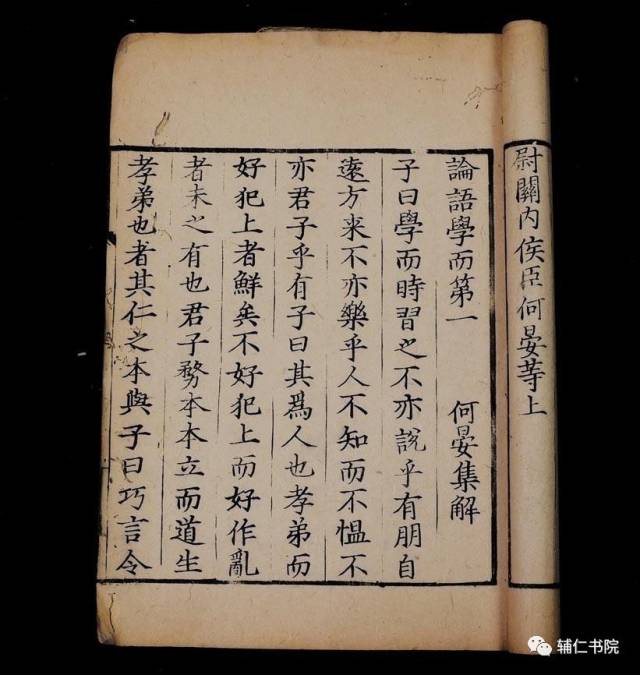 尉關内侯臣何晏等上
論語學而第一　何晏集解
子曰學而時習之不亦說乎有朋自
遠方来不亦樂乎人不知而不愠不
亦君子乎有子曰其爲人也孝弟而
好犯上者鮮矣不好犯上而好作亂
者未之有也君子務本本立而道生
孝弟也者其仁之本與子曰巧言令
辅仁书院